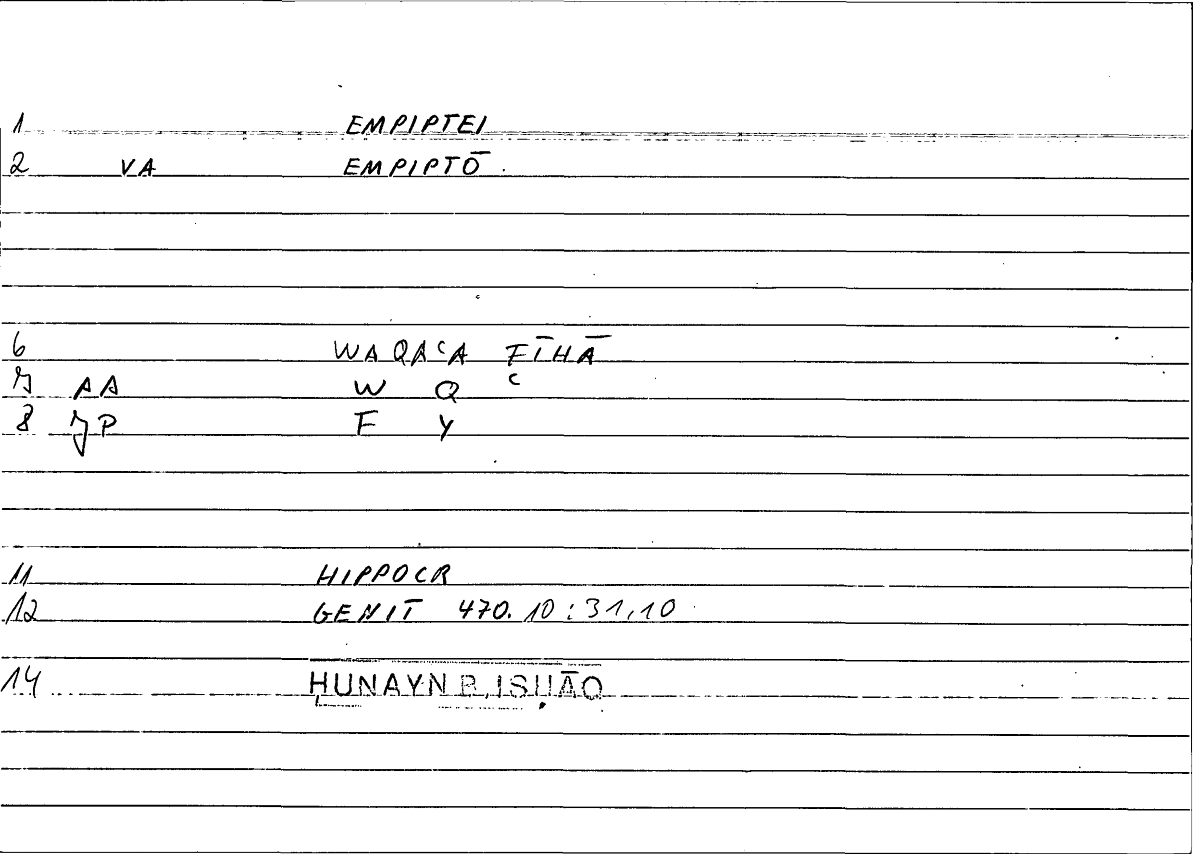 1 EMPIPTEI
2 VA EMPIPTŌ
6 WAQAʿA FĪHĀ
7 AA W Q ʿ
8 JP F Y
11 HIPPOCR
12 GENIT 470.10:31,10
14 ḤUNAYN B. ISḤĀQ